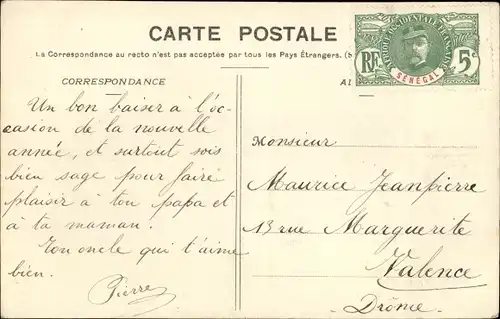 CARTE POSTALE
La Correspondance au recto n'est pas acceptée par tous les Pays Étrangers. (S
CORRESPONDANCE
Un bon baiser à l'oc-
casion de la nouvelle
année, et surtout sois
bien sage pour faire
plaisir à ton papa et
à ta maman.
Ton oncle qui t'aime
bien.
Pierre
AD
AFRIQUE OCCIDENTALE FRANÇAISE
RF
5c
SÉNÉGAL
Monsieur
Maurice Jeanpierre
13 rue Marguerite
Valence
- Drôme -